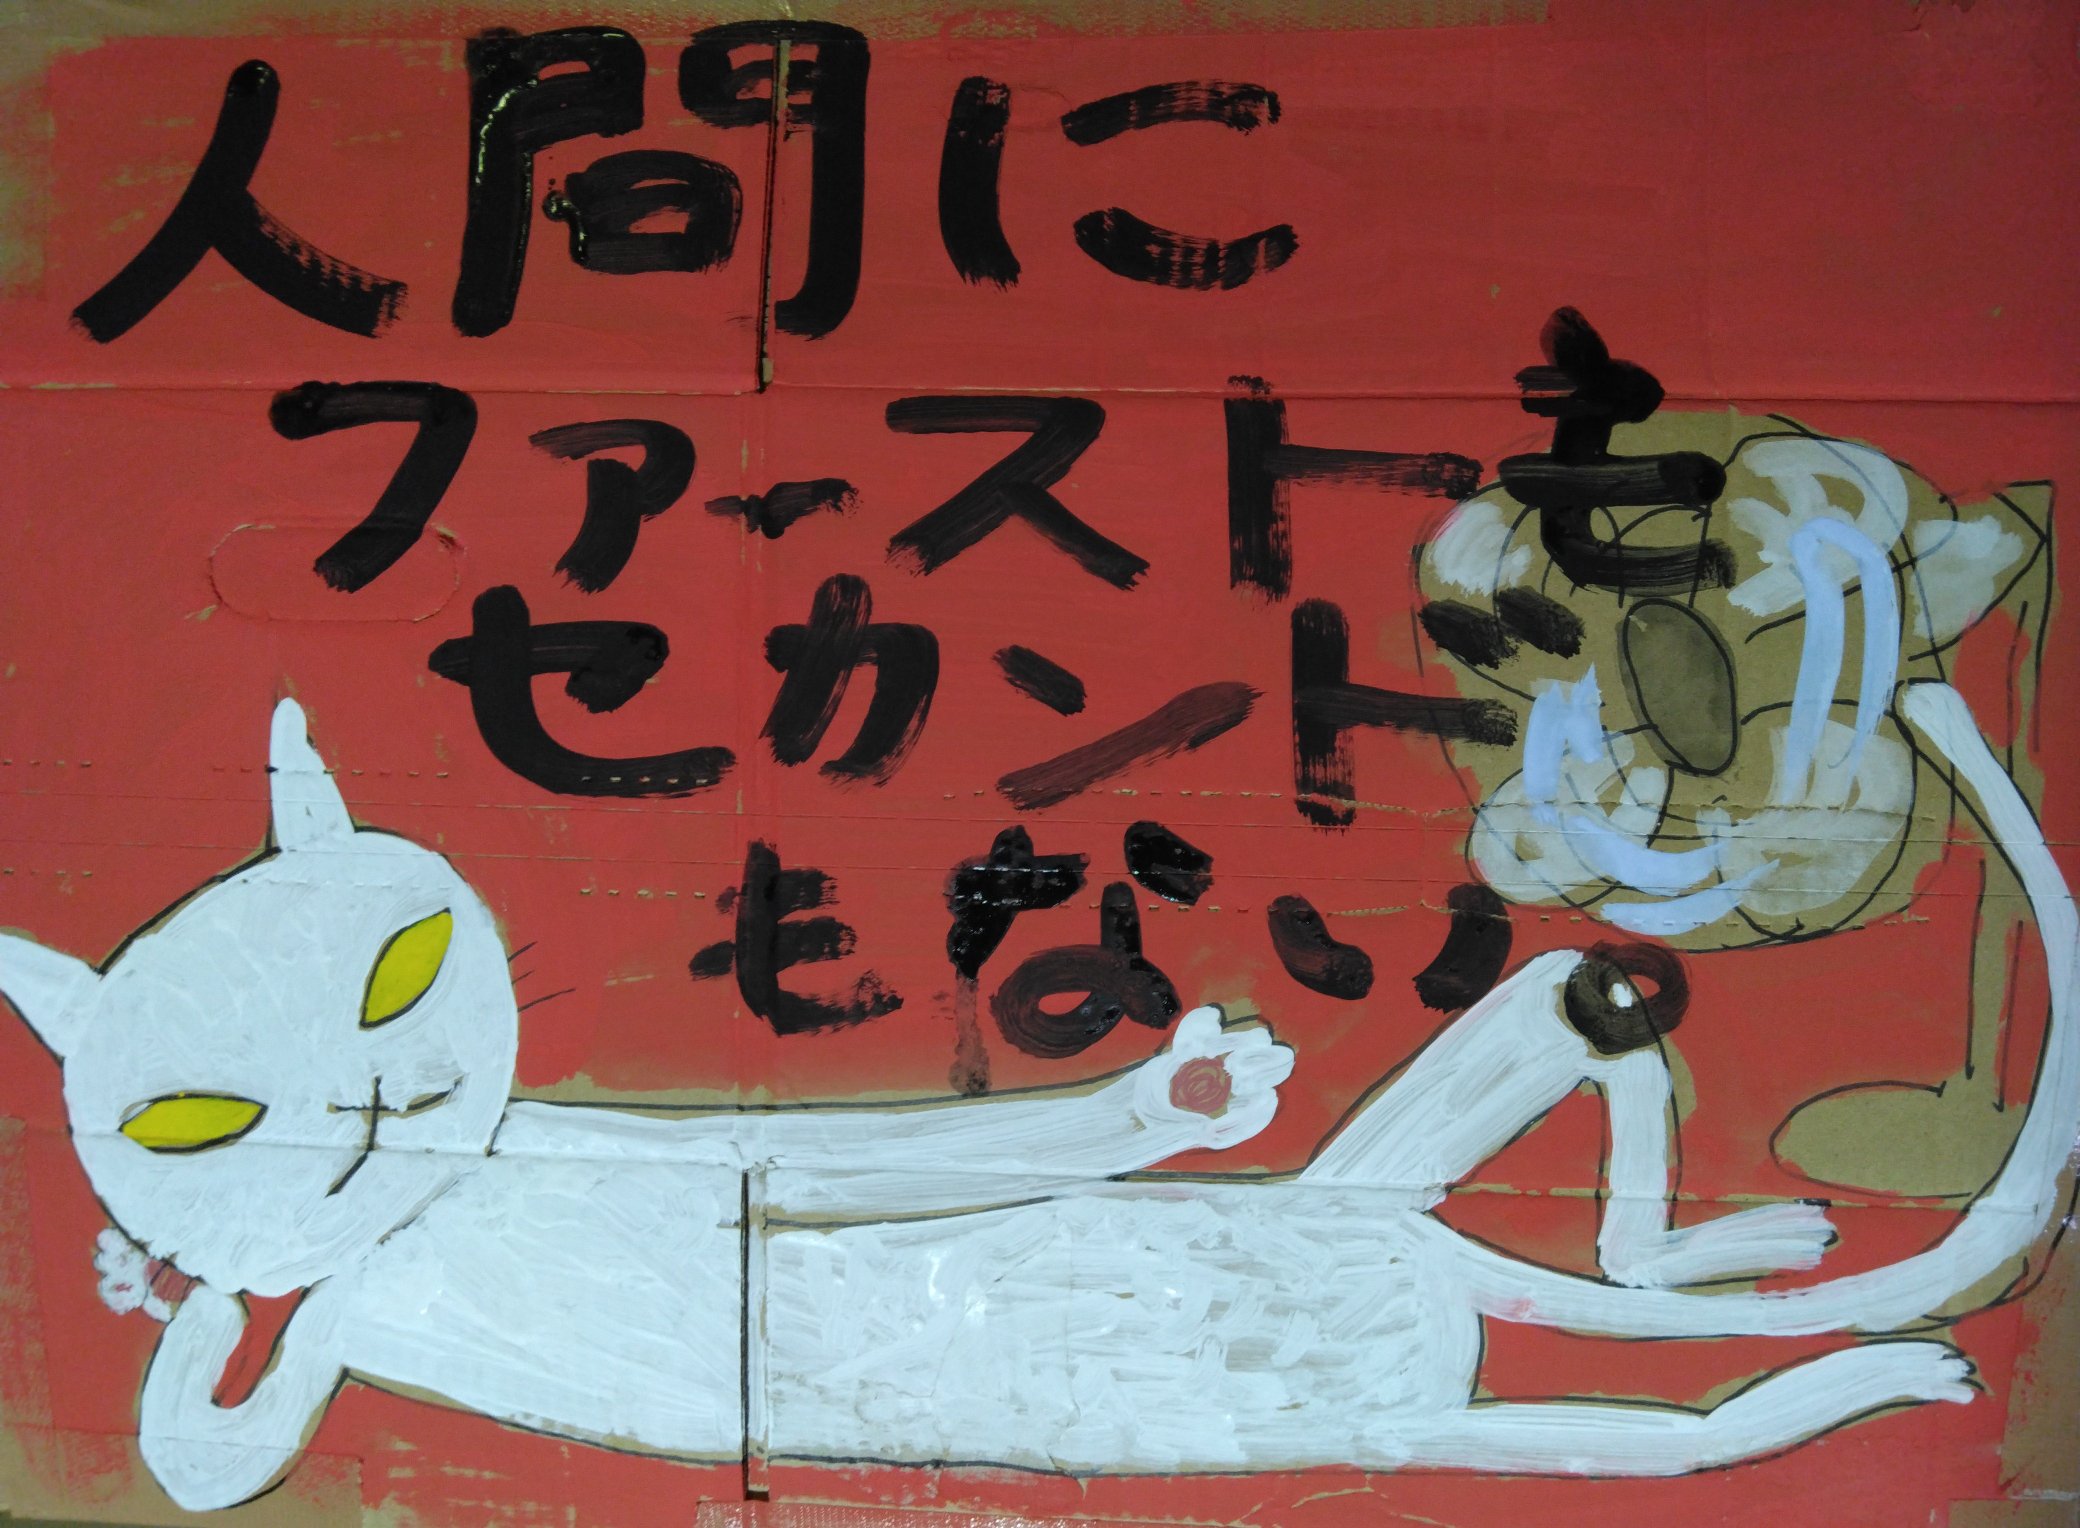 人間に
ファーストも
セカンドも
もない。